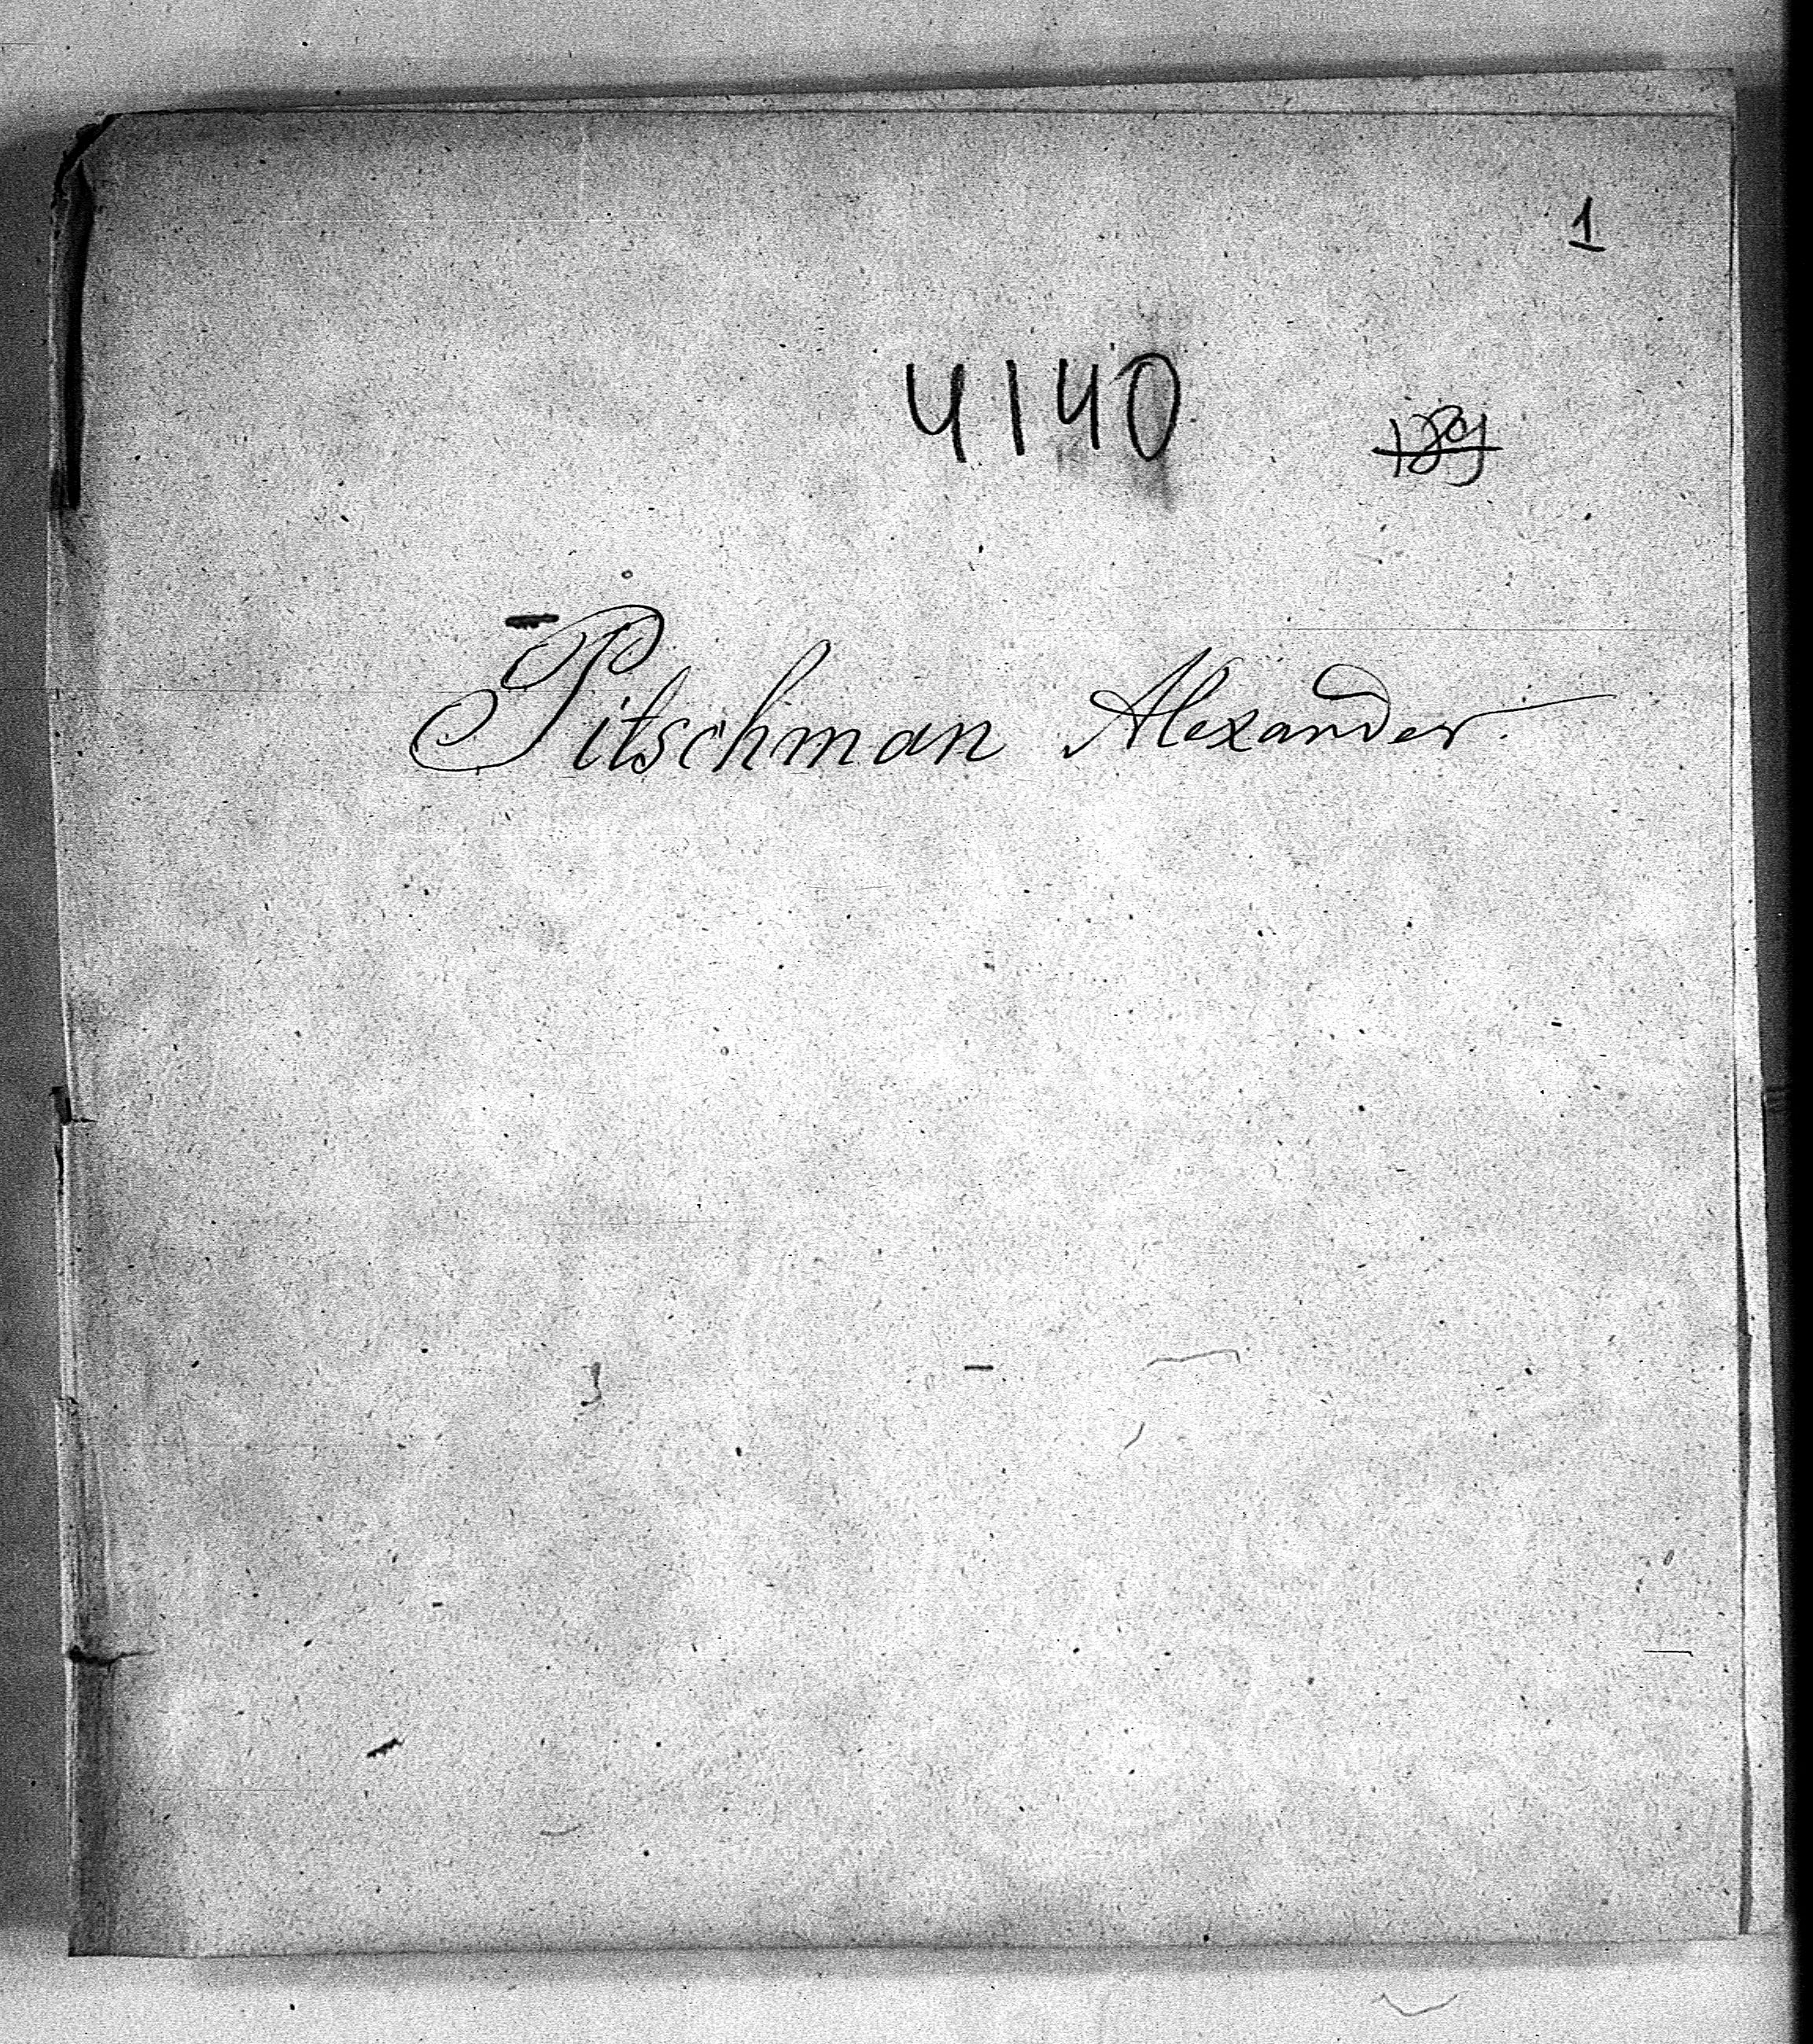 1
4140
189
Pitschman Alexander.